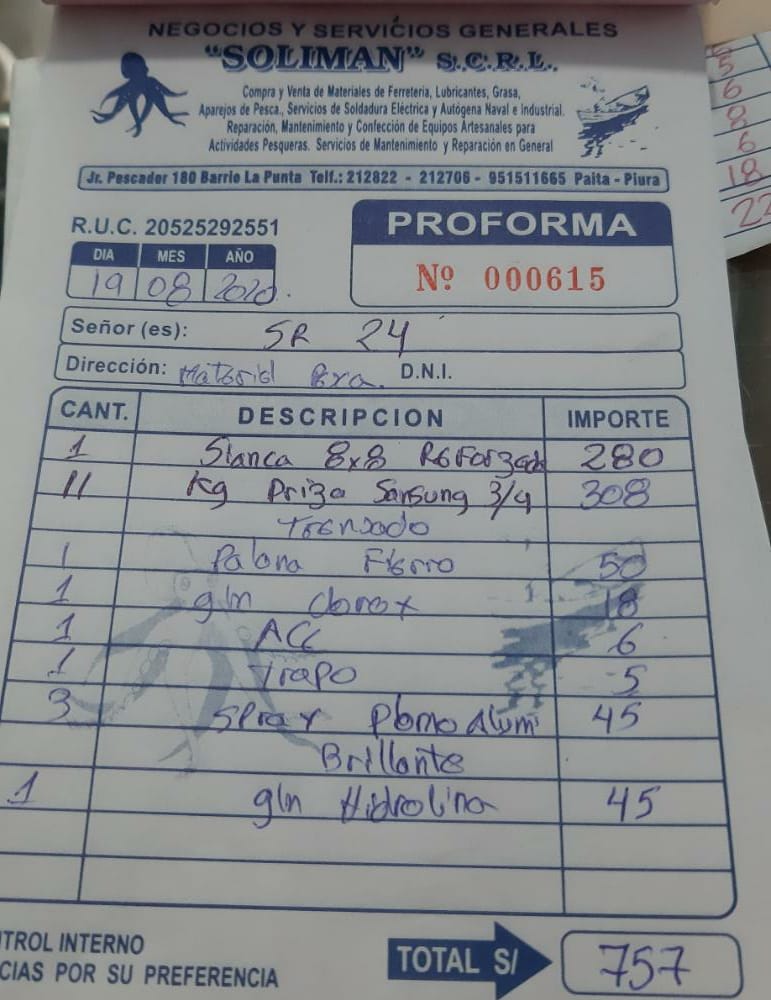 NEGOCIOS Y SERVICIOS GENERALES
"SOLIMAN" S.C.R.L.
Compra y Venta de Materiales de Ferretería, Lubricantes, Grasa,
Aparejos de Pesca., Servicios de Soldadura Eléctrica y Autógena Naval e Industrial.
Reparación, Mantenimiento y Confección de Equipos Artesanales para
Actividades Pesqueras. Servicios de Mantenimiento y Reparación en General
Jr. Pescador 180 Barrio La Punta Telf.: 212822 - 212706 - 951511665 Paita - Piura
R.U.C. 20525292551
PROFORMA
DIA MES AÑO
19 08 2020.
Nº 000615
Señor (es): SR 24
Dirección: Material D.N.I.
CANT. DESCRIPCION IMPORTE
1 8x8 280
11 Kg Driza Samsung 3/4 308
Trensado
1 Palana Fierro 50
1 gln Clorox 18
1 ACE 6
1 Trapo 5
3 Spray Plomo Alumi 45
Brillante
1 gln Hidrolina 45
TROL INTERNO
CIAS POR SU PREFERENCIA
TOTAL S/ 757
5
6
8
6
18
22